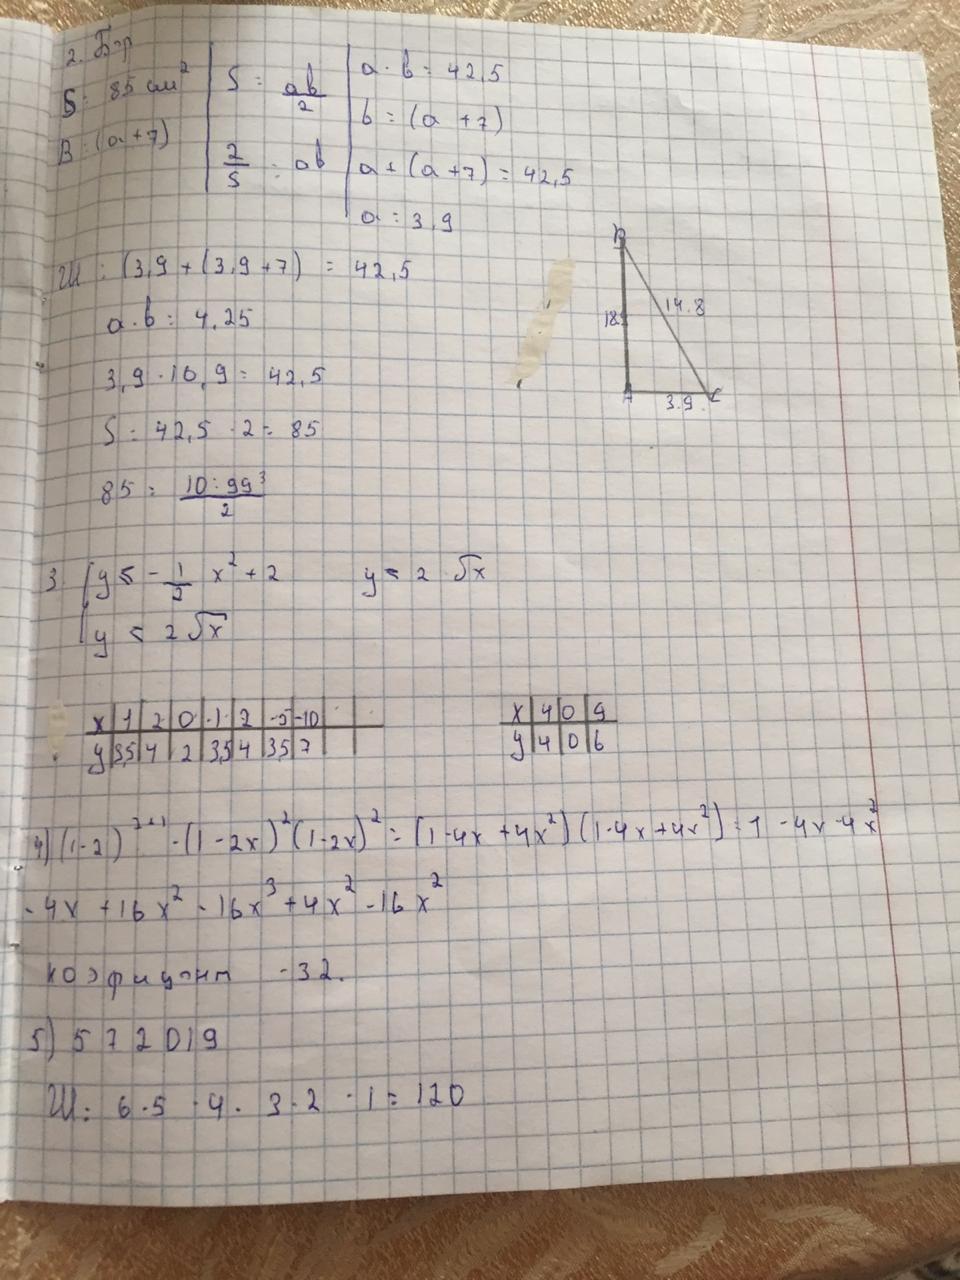 2. Бер
S = 85 см²
B = (a + 7)
S = ab/2
2/S = ab
a · b = 42,5
b = (a + 7)
a + (a + 7) = 42,5
a = 3,9
Ш: (3,9 + (3,9 + 7) = 42,5
a · b = 4,25
3,9 · 10,9 = 42,5
S = 42,5 · 2 = 85
85 =
B
18
14.8
A 3.9 C
3. y ≤ - 1/2 x² + 2 y = 2 · √x
y ≤ 2√x
x 1 2 0 -1 2 -5 -10
y 3,5 4 2 3,5 4 3,5 7
x 4 0 9
y 4 0 6
4) (1-2) · (1 - 2x)² (1-2x)² = (1-4x + 4x²) (1-4x + 4x²) = 1 - 4x - 4x²
- 4x + 16x² - 16x³ + 4x² - 16x²
коэфицент -32.
5) 5 7 2 0 1 9
Ш: 6 · 5 · 4 · 3 · 2 · 1 = 120